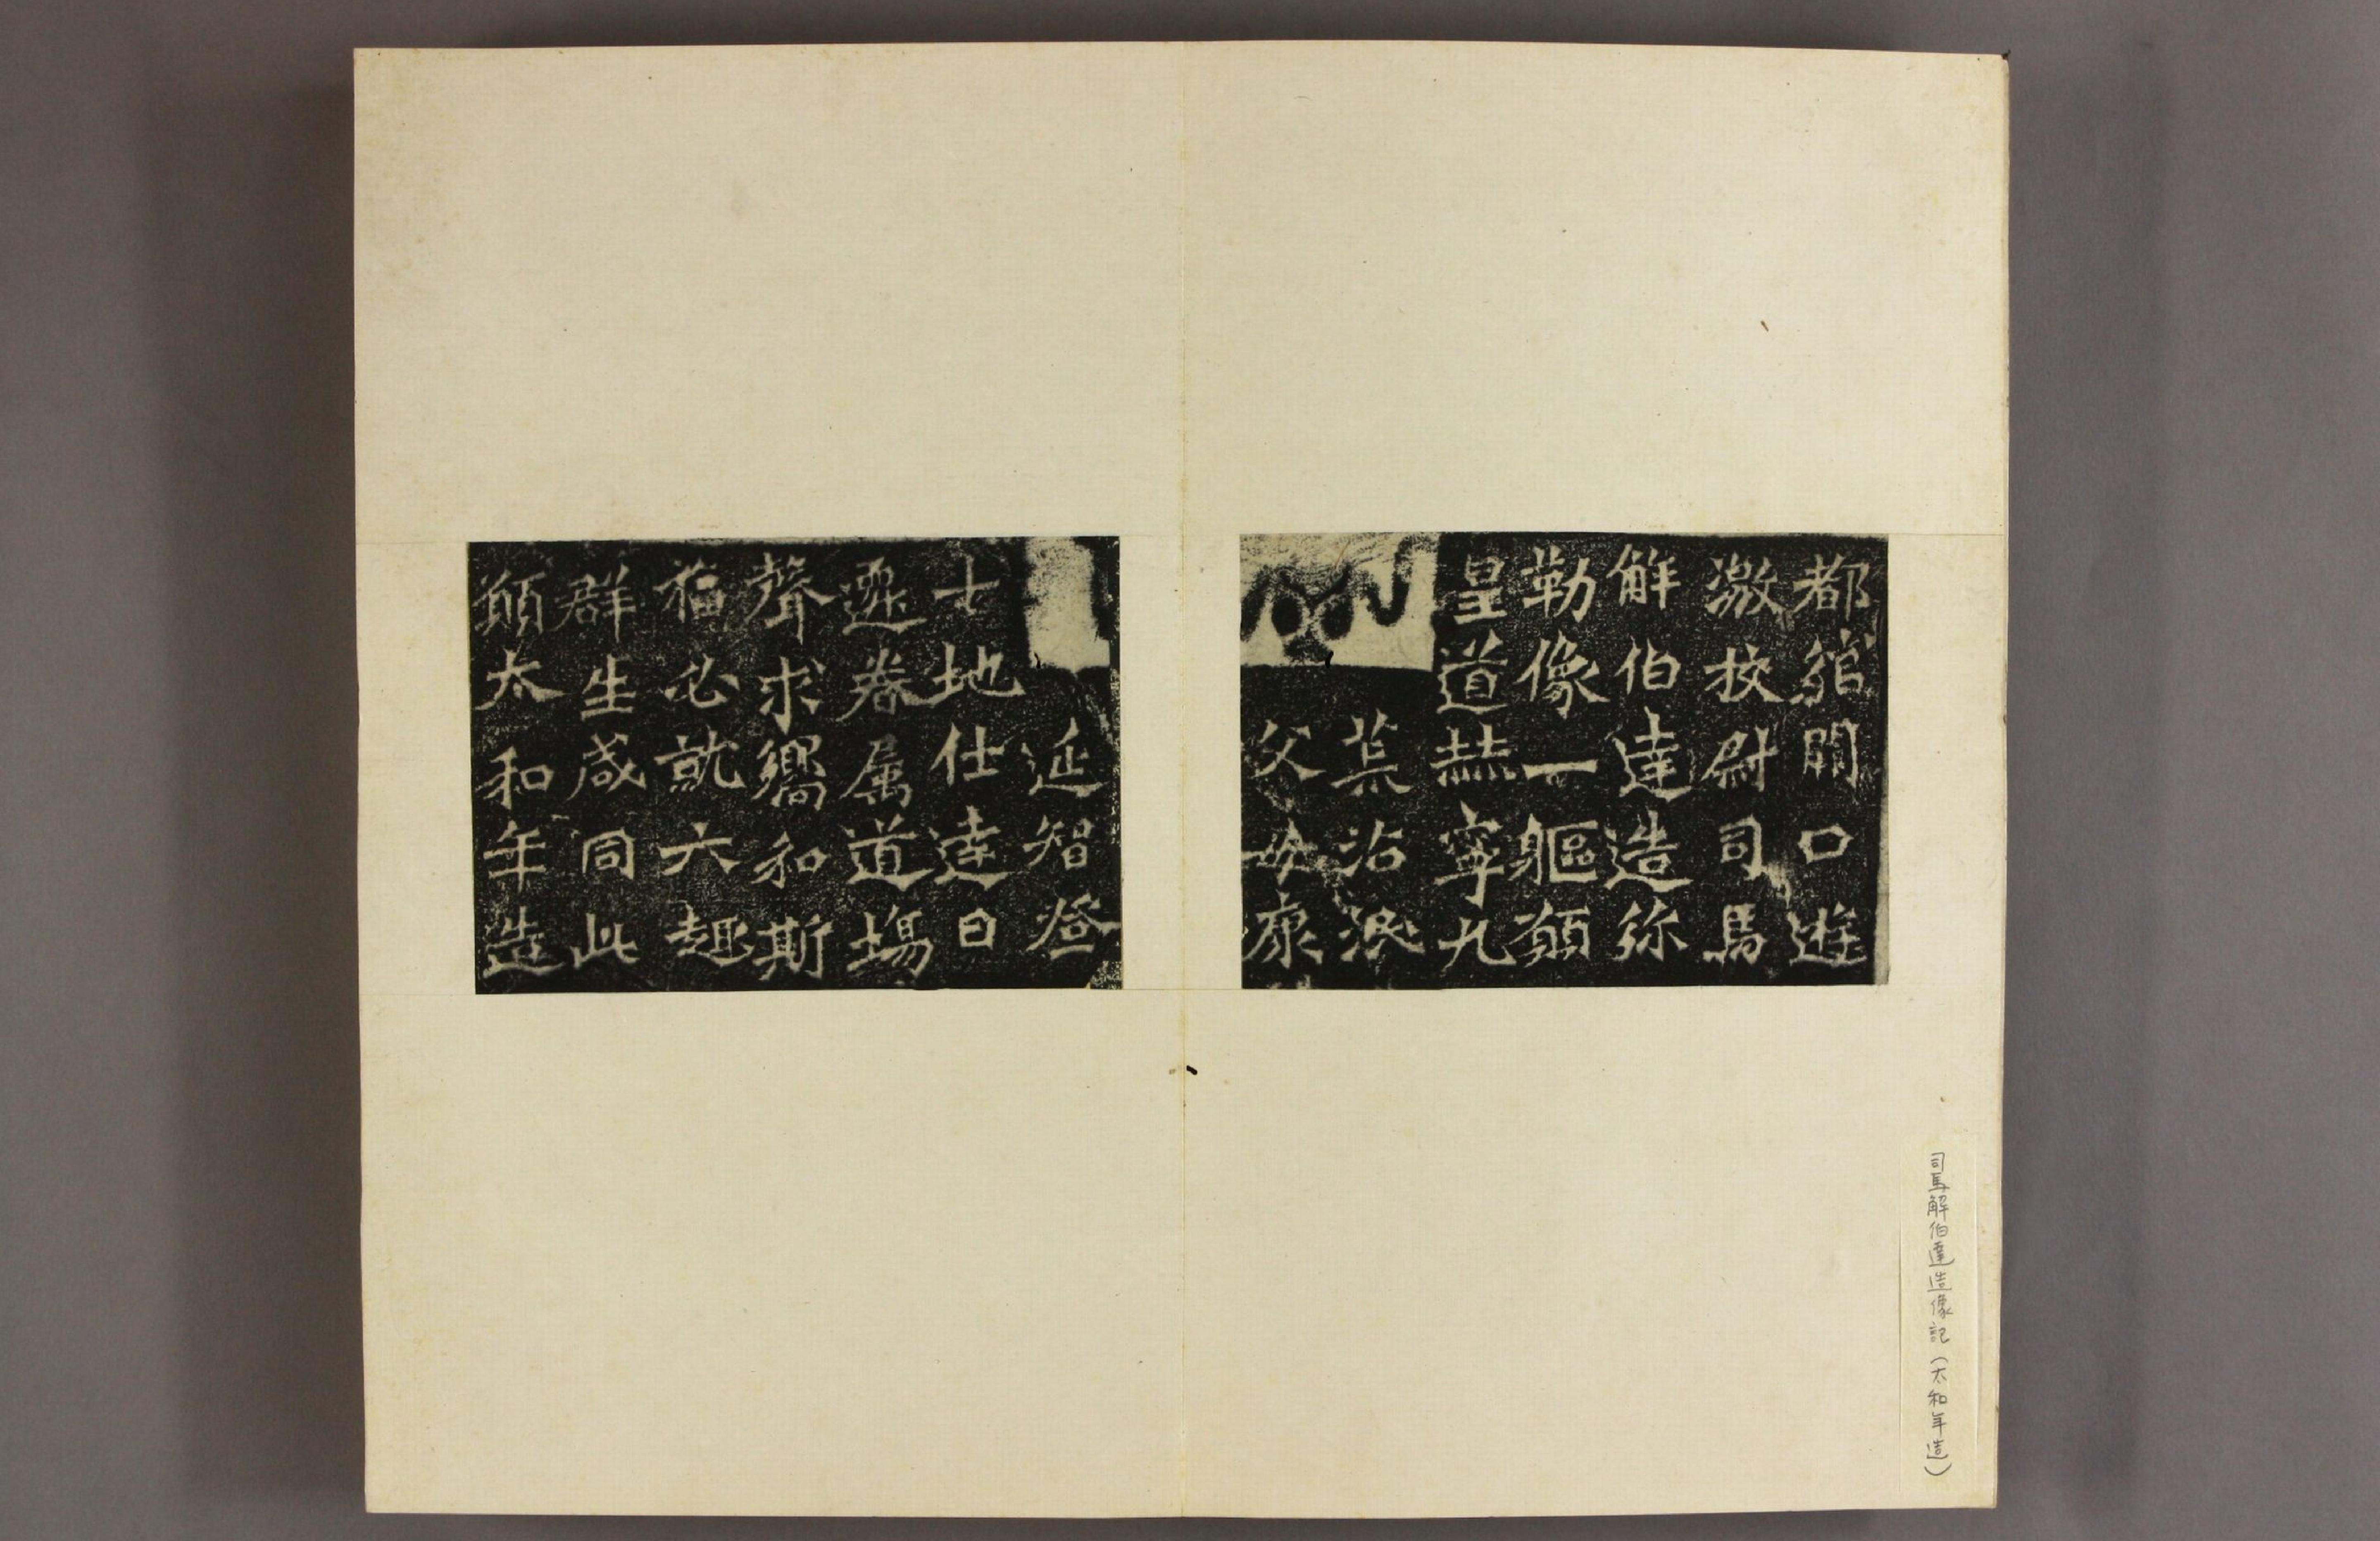 都綰闕口遊
激校尉司馬
解伯達造弥
勒像一軀願
皇道赫寧九
荒沾泯
父母康
延智登
士地仕達日
遷眷属道場
聲求嚮和斯
福必就六趣
群生咸同此
願太和年造
司馬解伯達造像記（太和年造）